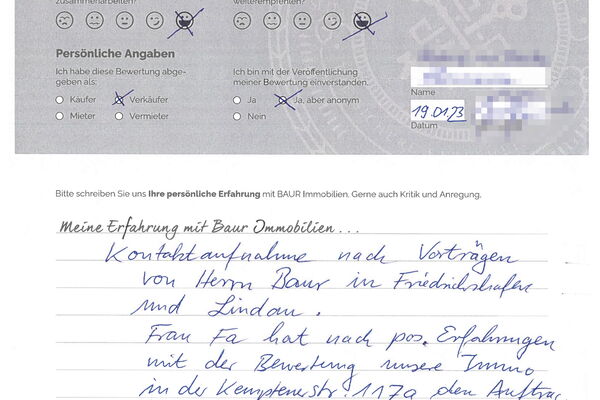 zusammenarbeiten? weiterempfehlen?
Persönliche Angaben
Ich habe diese Bewertung abge- Ich bin mit der Veröffentlichung
geben als: meiner Bewertung einverstanden.
Käufer Verkäufer Ja Ja, aber anonym
Mieter Vermieter Nein
Name
19.01.23
Datum
Bitte schreiben Sie uns Ihre persönliche Erfahrung mit BAUR Immobilien. Gerne auch Kritik und Anregung.
Meine Erfahrung mit Baur Immobilien...
Kontaktaufnahme nach Vorträgen
von Herrn Baur in Friedrichshafen
und Lindau.
Frau Fa hat nach pos. Erfahrungen
mit der Bewertung unsere Immo
in der Kemptenerstr. 117a den Auftrag